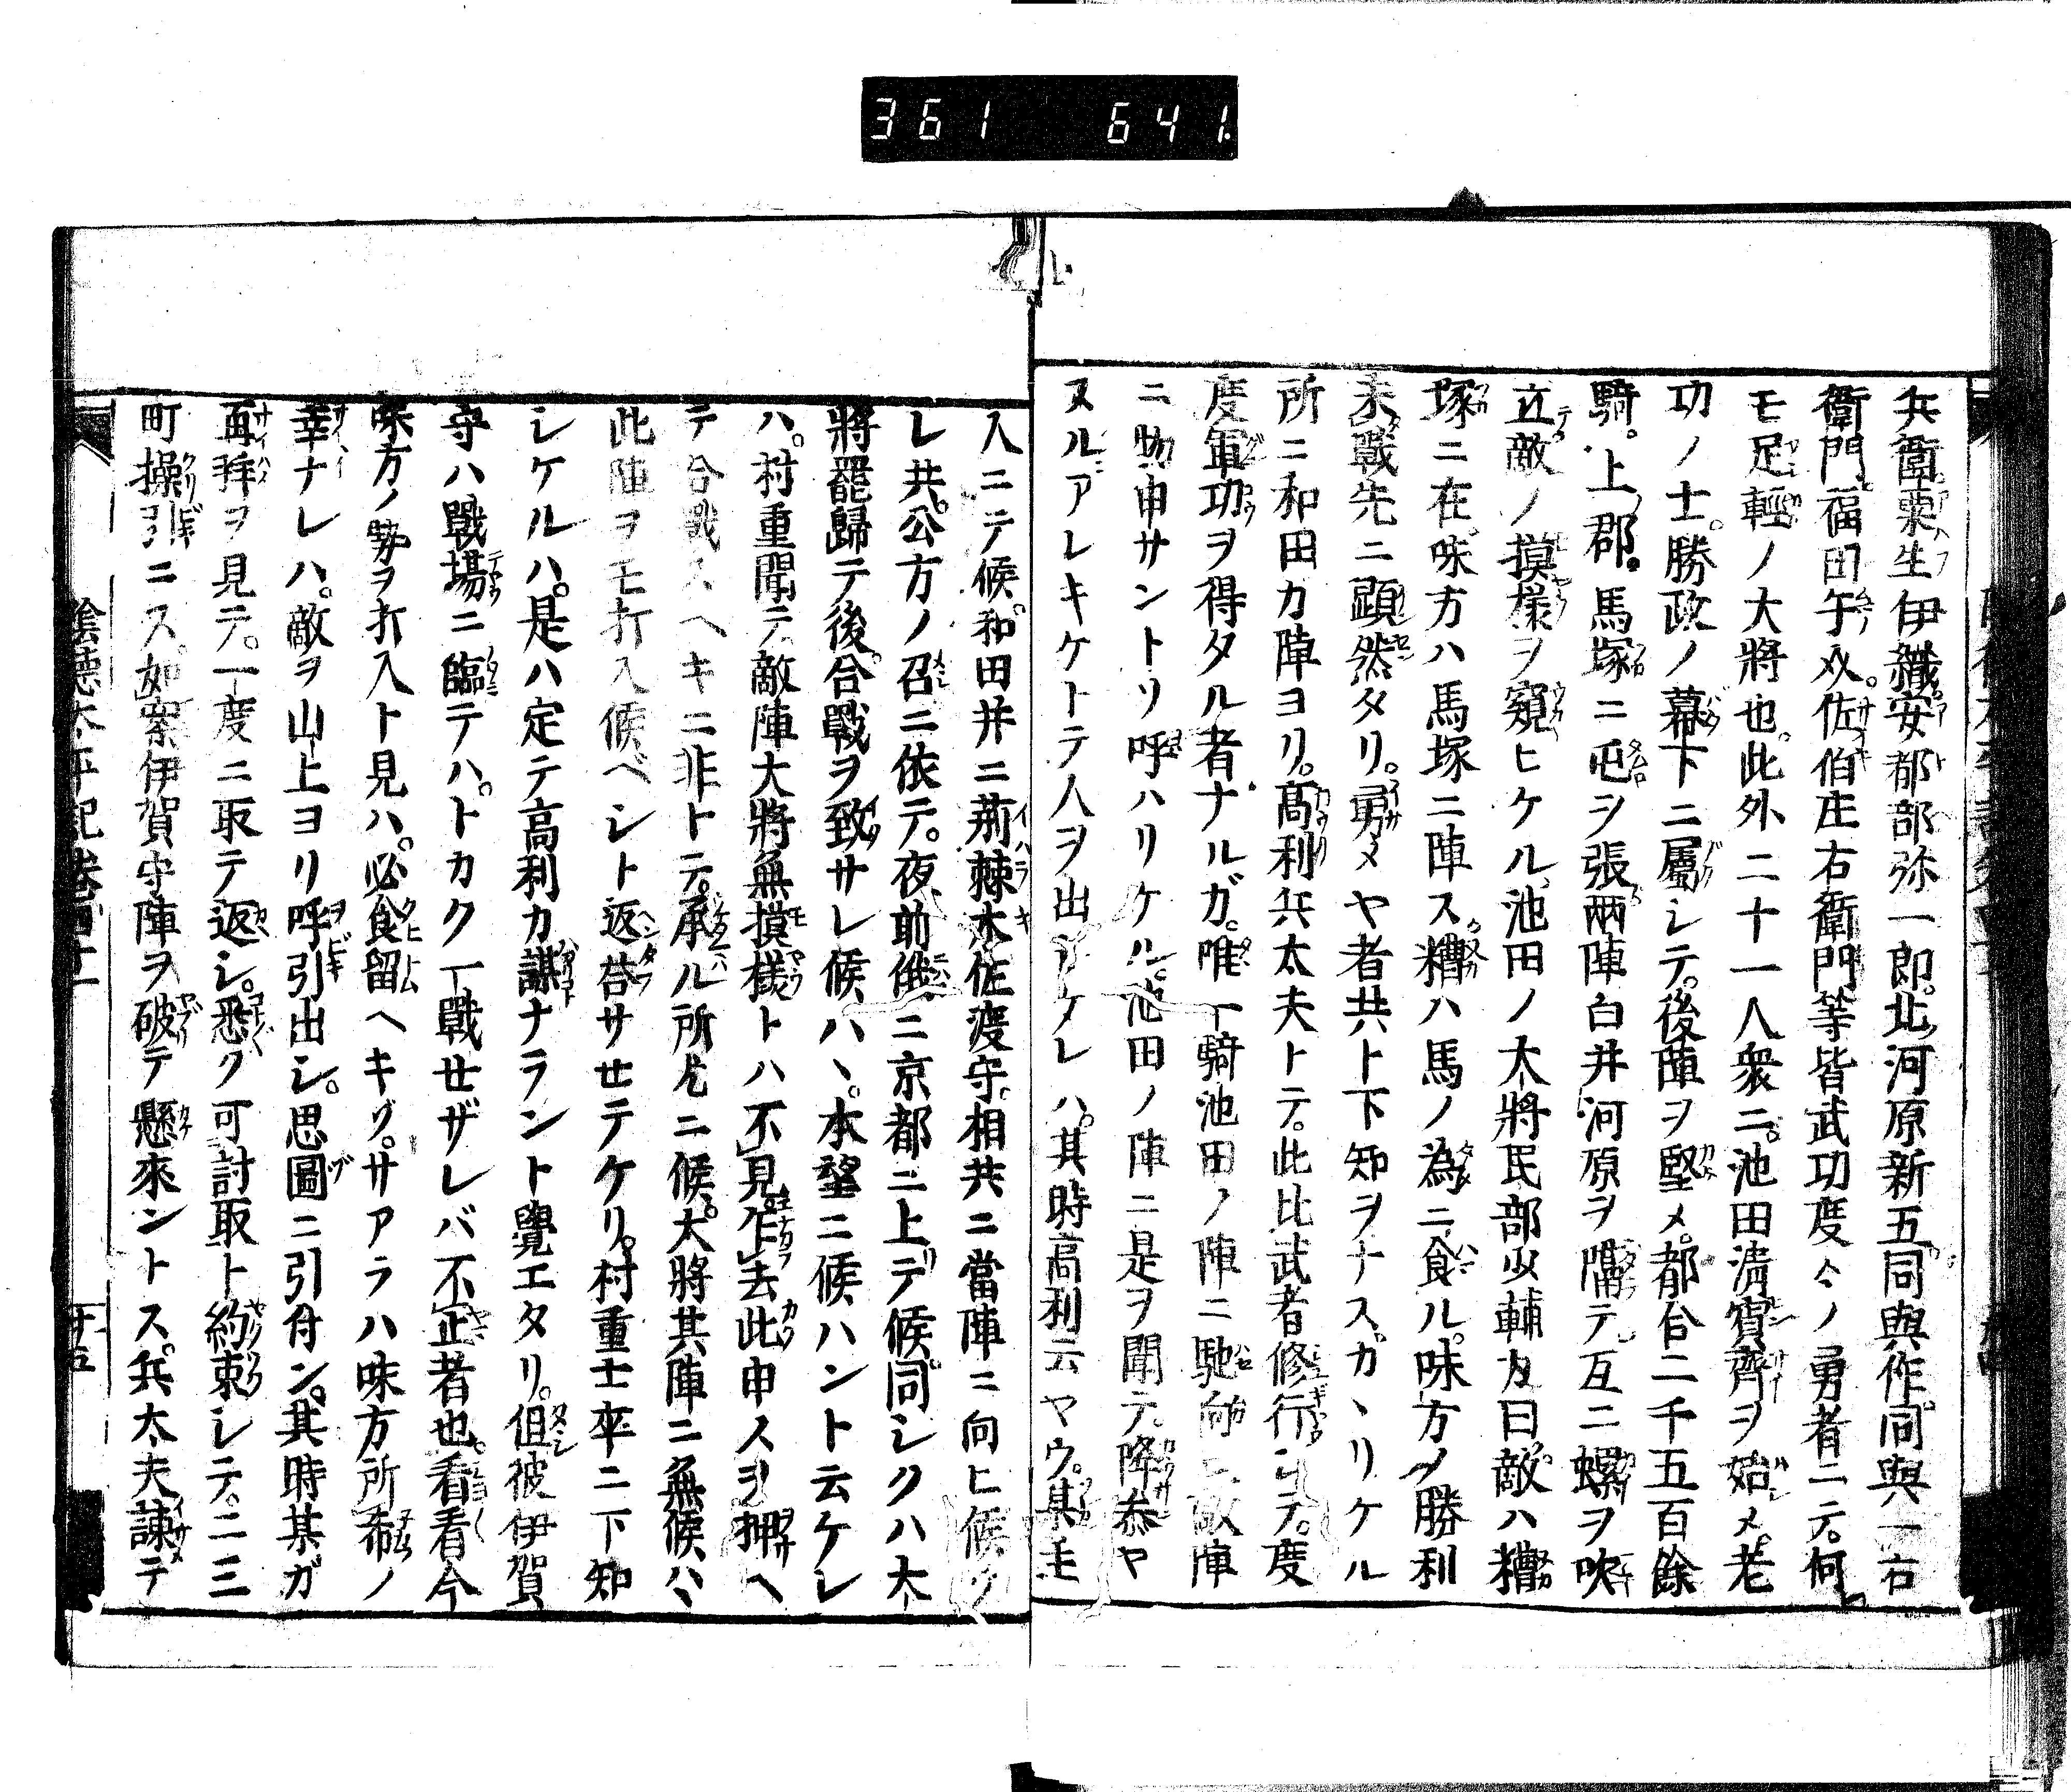 361 641
兵衛粟生伊織安都部弥一郎北河原新五同與作同與一右
衛門福田午ノ丞佐伯庄右衛門等皆武功度々ノ勇者ニテ何
モ足輕ノ大將也此外二十一人衆ニ池田清貧齊ヲ始メ老
功ノ士勝政ノ幕下ニ屬シテ後陣ヲ堅メ都合二千五百餘
騎上郡馬塚ニ屯ヲ張兩陣白井河原ヲ隔テ互ニ螺ヲ吹
立敵ノ摸樣ヲ窺ヒケル池田ノ大將民部少輔友曰敵ハ糟
塚ニ在味方ハ馬塚ニ陣ス糟ハ馬ノ為ニ食ル味方ノ勝利
未戰先ニ顕然タリ勇メヤ者共ト下知ヲナスカヽリケル
所ニ和田カ陣ヨリ高利兵太夫トテ此比武者修行シテ度
度軍功ヲ得タル者ナルガ唯一騎池田ノ陣ニ馳向ヒ敵陣
ニ物申サントソ呼ハリケル池田ノ陣ニ是ヲ聞テ降参ヤ
スルアレキケトテ人ヲ出シケレハ其時高利云ヤウ某ハ
人ニテ候和田并ニ荊棘木佐渡守相共ニ當陣ニ向ヒ候ツ
レ共公方ノ召ニ依テ夜前俄ニ京都ニ上テ候同シクハ大
將罷歸テ後合戰ヲ致サレ候ハヽ本望ニ候ハント云ケレ
ハ村重聞テ敵陣大將無摸樣トハ不見乍去此申スヲ押ヘ
テ合戰スヘキニ非トテ承ル所尤ニ候大將其陣ニ無候ハヽ
此陣ヲモ打入候ベシト返荅サセテケリ村重士卒ニ下知
シケルハ是ハ定テ高利カ謀ナラント覺エタリ但彼伊賀
守ハ戰場ニ臨テハトカク一戰セザレバ不止者也看看今
味方ノ勢ヲ打入ト見ハ必食留ヘキゾサアラハ味方所希ノ
幸ナレハ敵ヲ山上ヨリ呼引出シ思圖ニ引舟ン其時某ガ
再拜ヲ見テ一度ニ取テ返シ悉ク可討取ト約束シテ二三
町操引ニス如案伊賀守陣ヲ破テ懸來ントス兵太夫諫テ
陰德太平記巻四十一
廿五